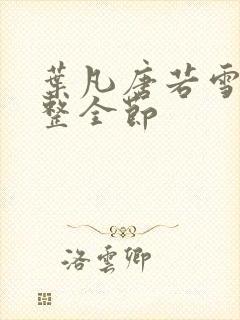 葉凡唐若雪
整全節
洛雲卿